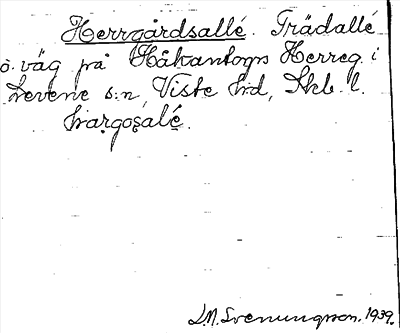 Herrgårdsallé. Trädallé
o. väg på Håkantorps Herreg. i
Levene s:n, Viste hrd, Skb. l.
härgosalé.
L.M. Svenungsson. 1939.